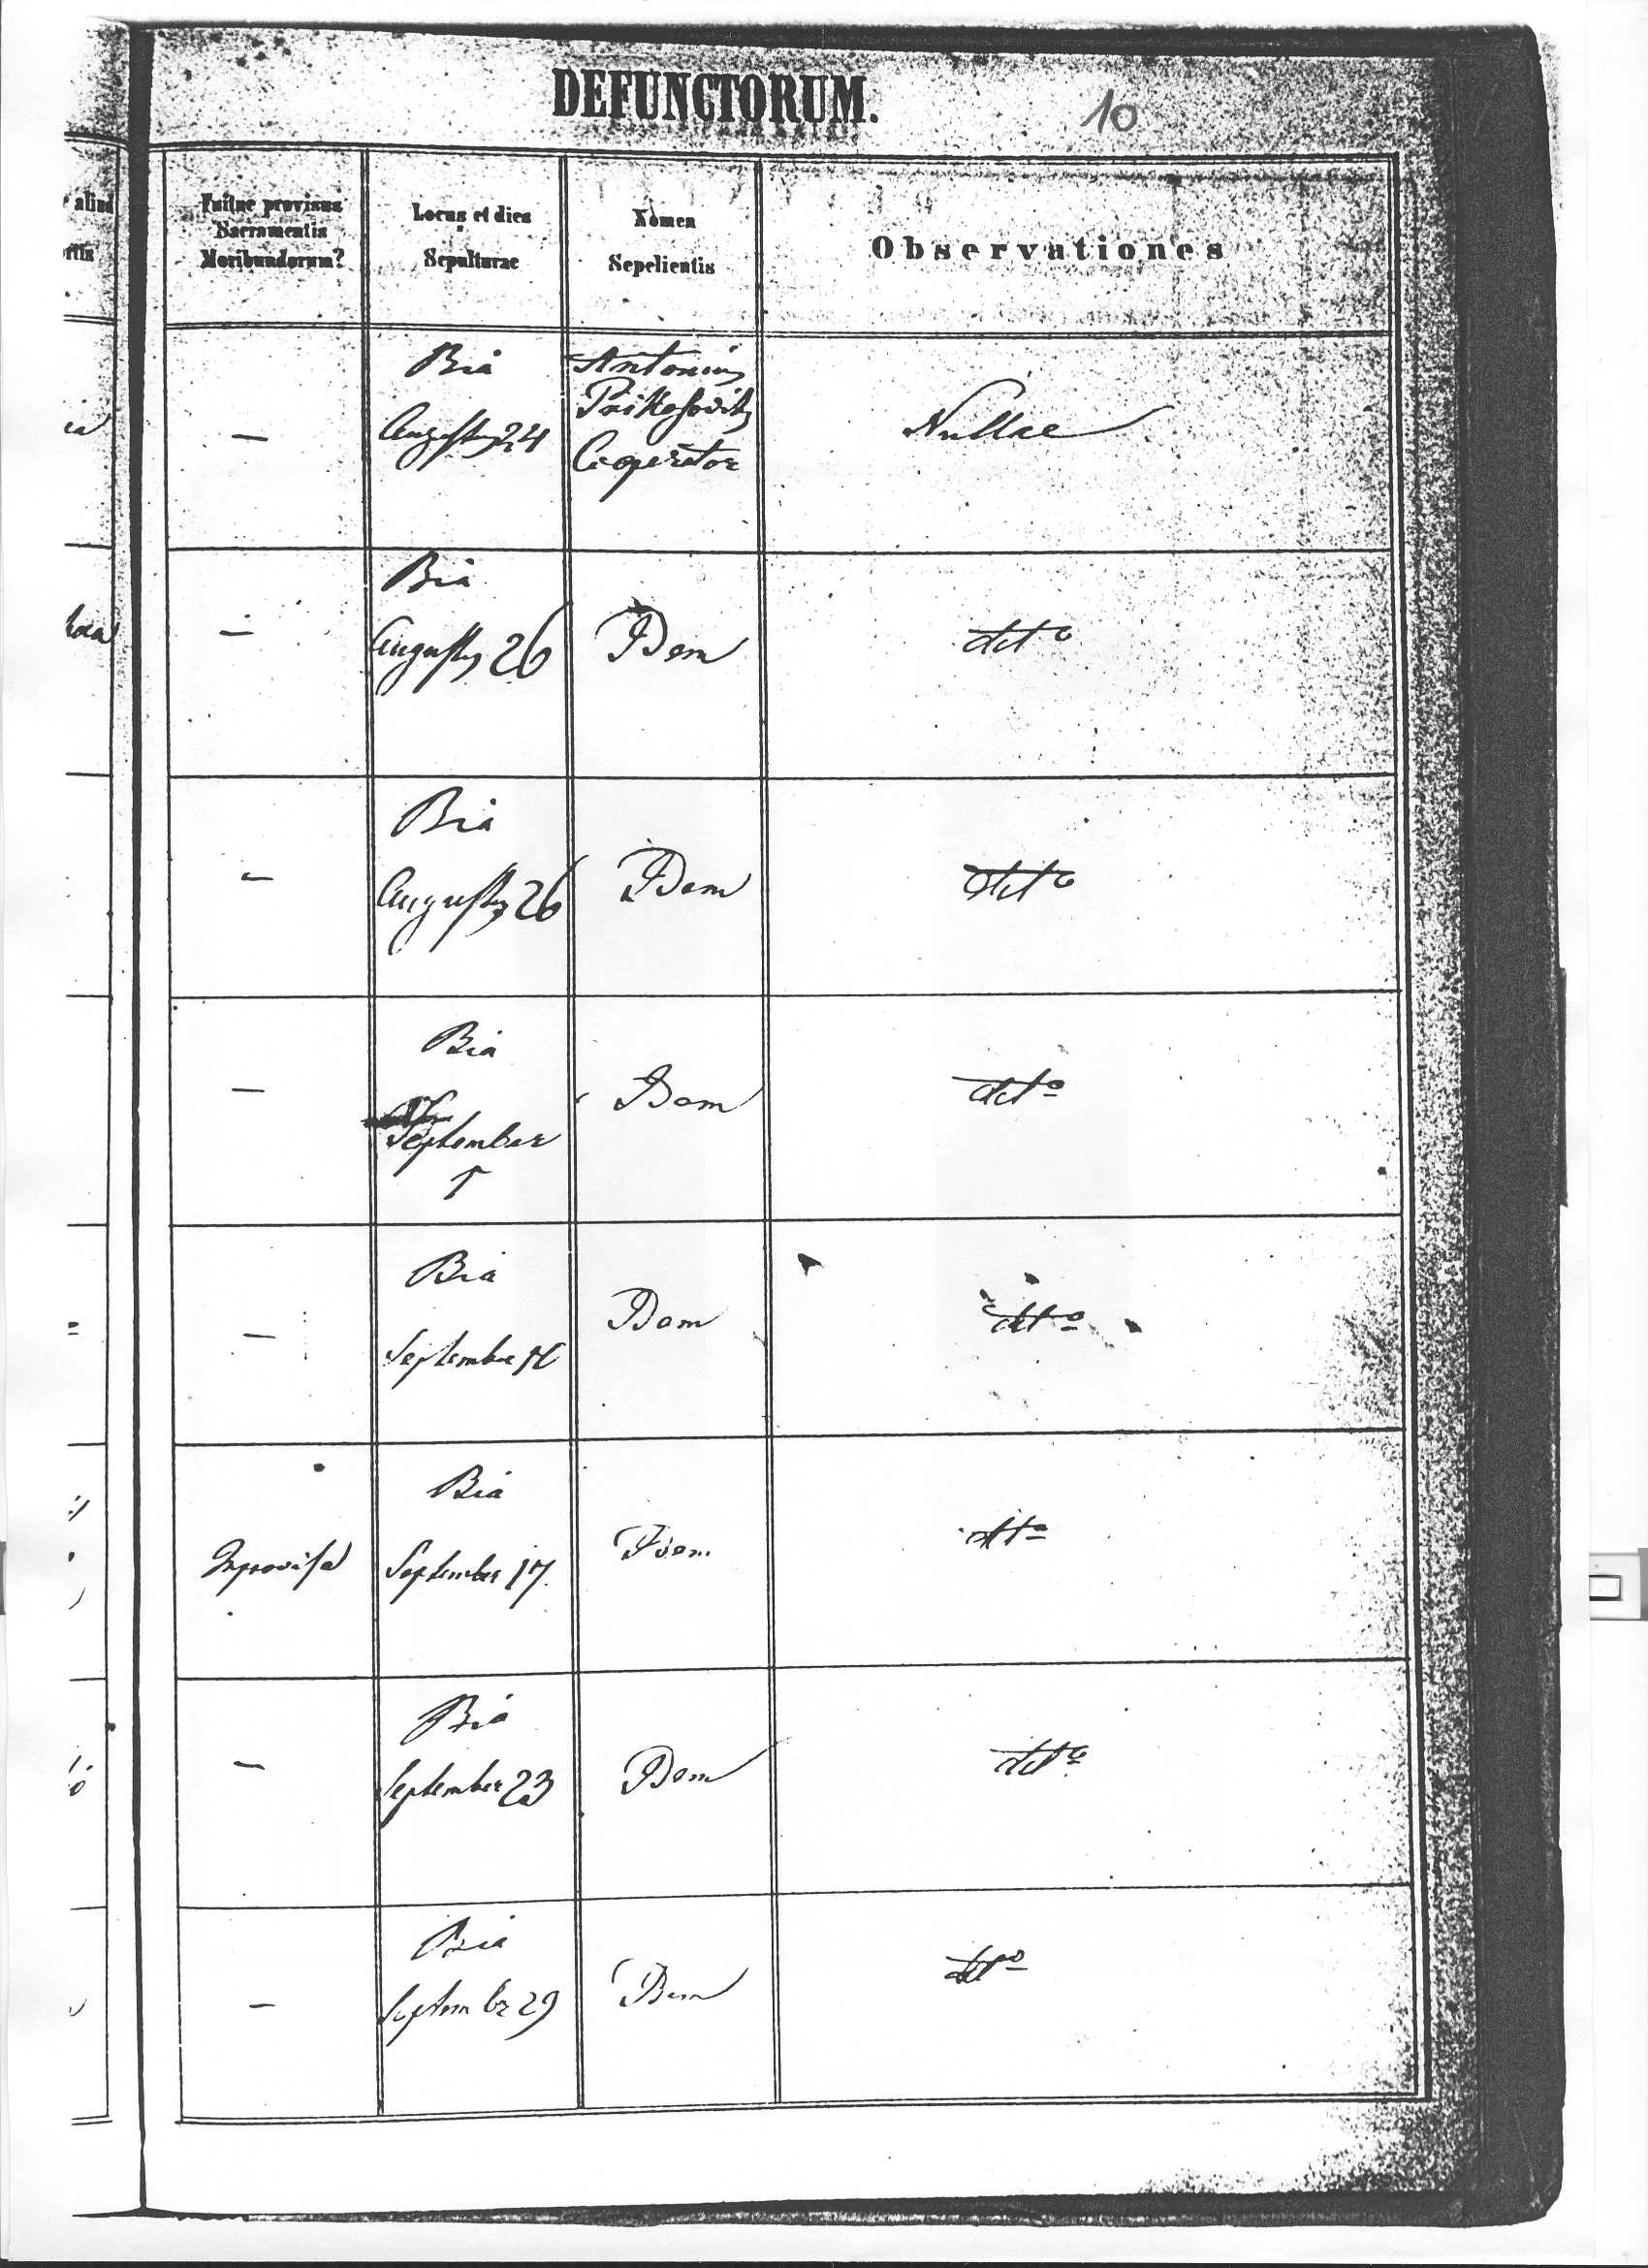 DEFUNCTORUM.
10
Fuitne provisus
Sacramentis
Moribundorum?
Locus et dies
Sepulturae
Nomen
Sepelientis
Observationes
—
Bia
Augustus 24
Antonius
Cooperator
Nullae
—
Bia
Augustus 26
Idem
detto
—
Bia
Augustus 26
Idem
detto
—
Bia
September
Idem
detto
—
Bia
September
Idem
detto
Improvisa
Bia
September 17.
Idem
detto
—
Bia
September 23
Idem
detto
—
Bia
September 29
Idem
detto